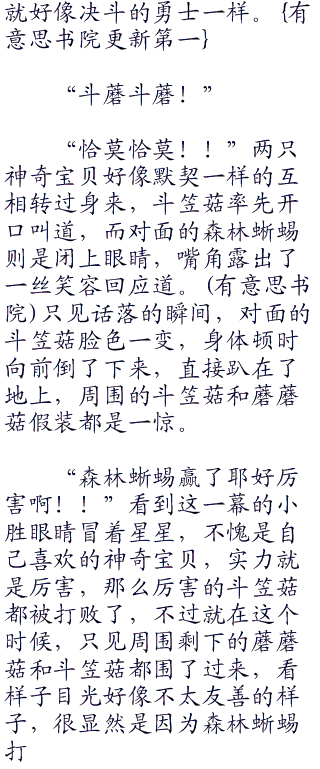 就好像决斗的勇士一样。{有
意思书院更新第一}
“斗蘑斗蘑！”
“恰莫恰莫！！”两只
神奇宝贝好像默契一样的互
相转过身来，斗笠菇率先开
口叫道，而对面的森林蜥蜴
则是闭上眼睛，嘴角露出了
一丝笑容回应道。(有意思书
院)只见话落的瞬间，对面的
斗笠菇脸色一变，身体顿时
向前倒了下来，直接趴在了
地上，周围的斗笠菇和蘑蘑
菇假装都是一惊。
“森林蜥蜴赢了耶好厉
害啊！！”看到这一幕的小
胜眼睛冒着星星，不愧是自
己喜欢的神奇宝贝，实力就
是厉害，那么厉害的斗笠菇
都被打败了，不过就在这个
时候，只见周围剩下的蘑蘑
菇和斗笠菇都围了过来，看
样子目光好像不太友善的样
子，很显然是因为森林蜥蜴
打